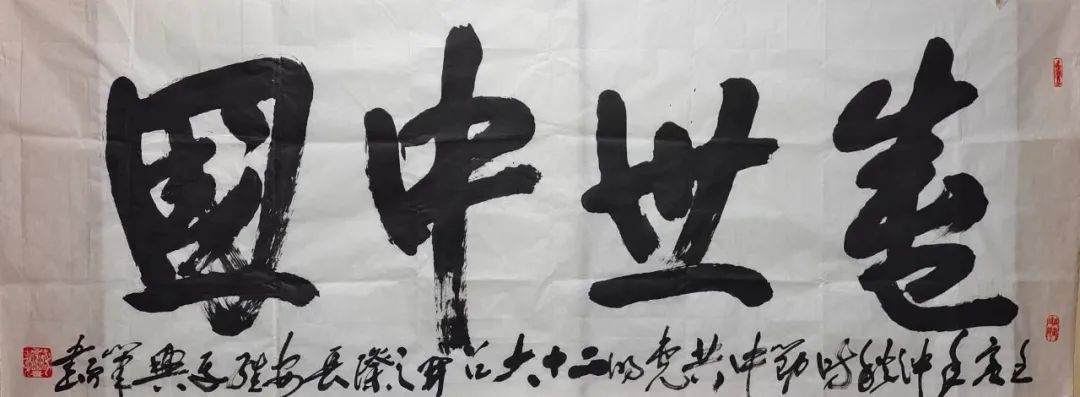 盛世中國
壬寅年仲秋時節中共党的二十大召開之際長安興筆書